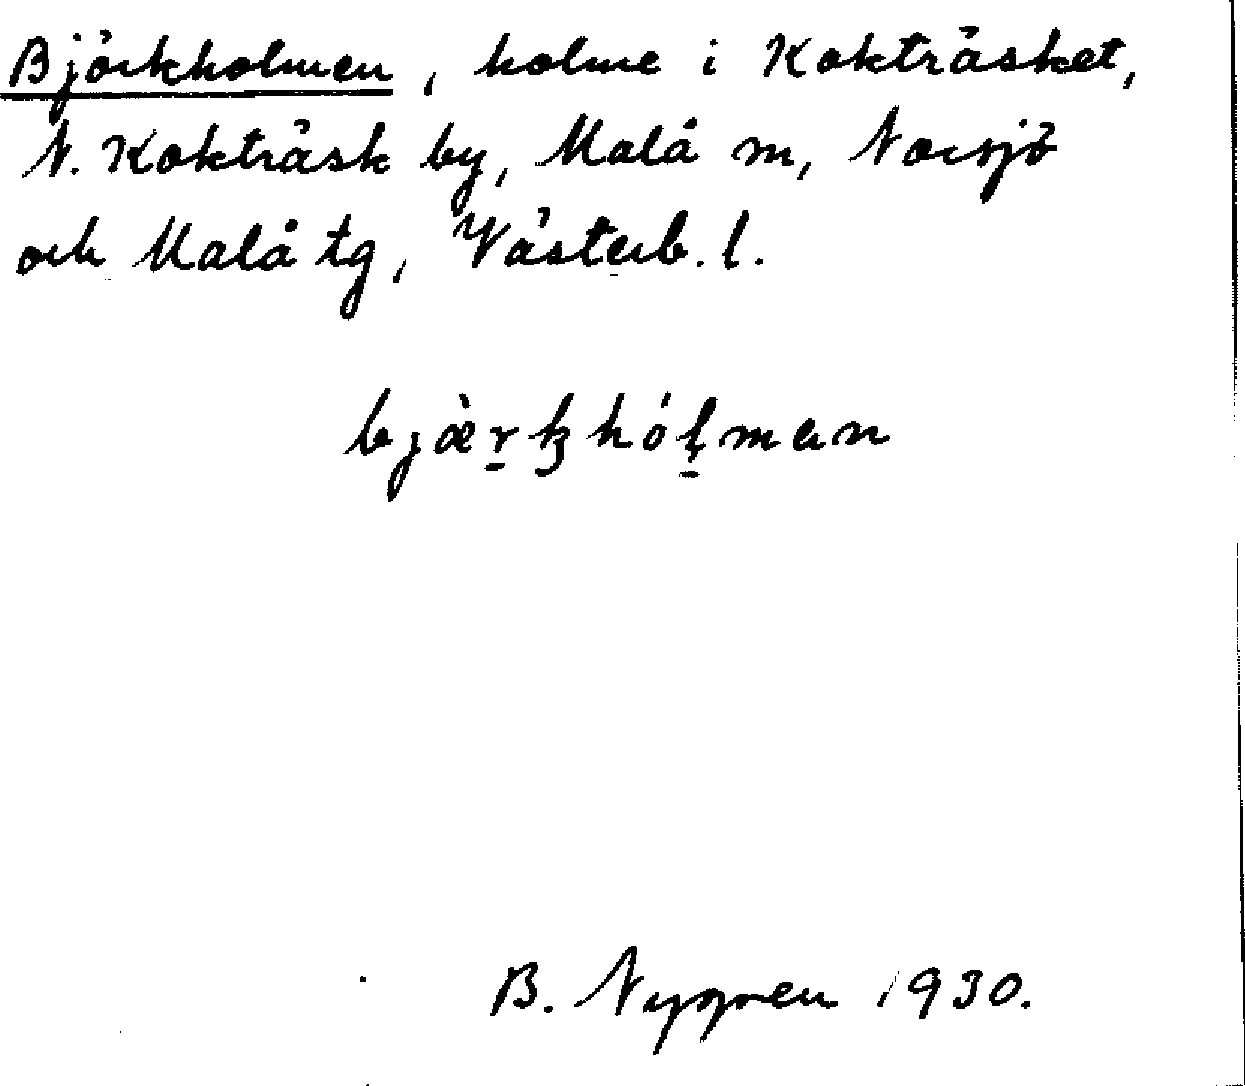 Björkholmen, holme i Kokträsket,
N. Kokträsk by, Malå sn, Norsjö
och Malå tg, Västerb. l.
bjæ̀r̠ꝁhóɭ̠mɐn
B. Nygren 1930.